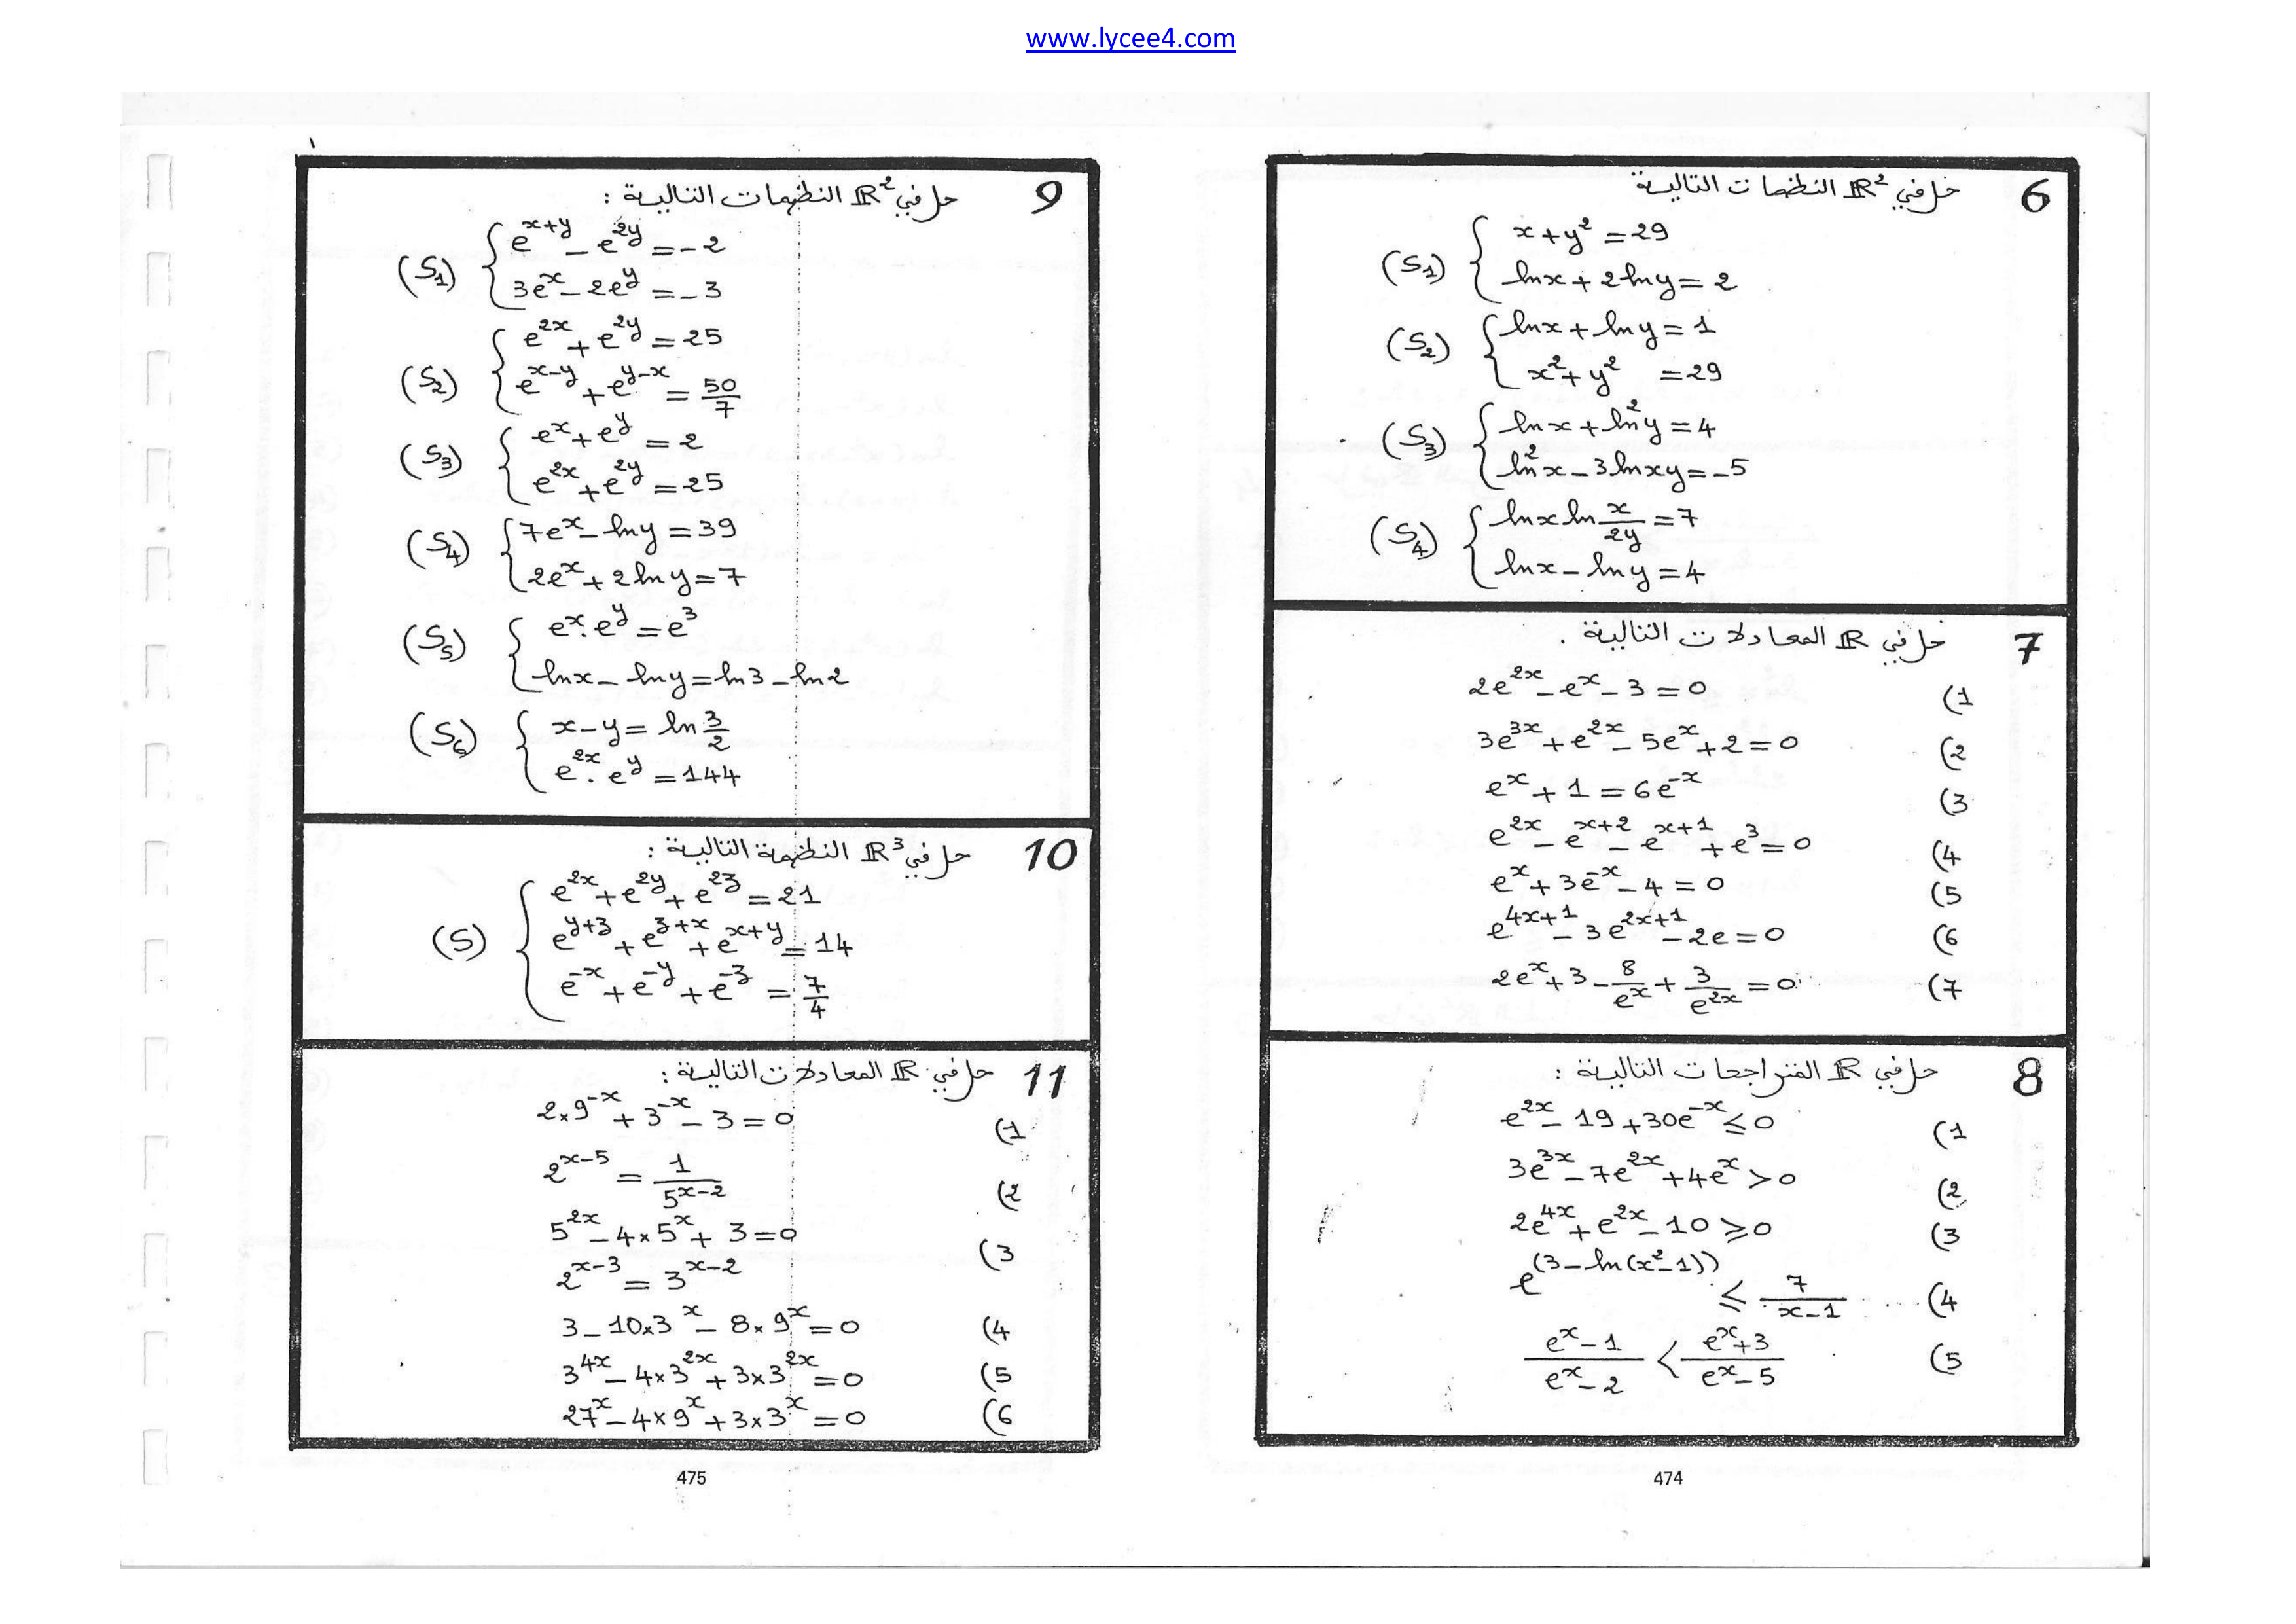 www.lycee4.com
6 حل في ℝ² النظمات التالية
(S₁) { x + y² = 29
lnx + 2lny = 2
(S₂) { lnx + lny = 1
x² + y² = 29
(S₃) { lnx + ln²y = 4
ln²x - 3lnxy = -5
(S₄) { lnx ln x/2y = 7
lnx - lny = 4
7 حل في ℝ المعادلات التالية .
(1 2e²ˣ - eˣ - 3 = 0
(2 3e³ˣ + e²ˣ - 5eˣ + 2 = 0
(3 eˣ + 1 = 6e⁻ˣ
(4 e²ˣ - eˣ⁺² - eˣ⁺¹ + e³ = 0
(5 eˣ + 3e⁻ˣ - 4 = 0
(6 e⁴ˣ⁺¹ - 3e²ˣ⁺¹ - 2e = 0
(7 2eˣ + 3 - 8/eˣ + 3/e²ˣ = 0
8 حل في ℝ المتراجحات التالية :
(1 e²ˣ - 19 + 30e⁻ˣ ≤ 0
(2 3e³ˣ - 7e²ˣ + 4eˣ > 0
(3 2e⁴ˣ + e²ˣ - 10 ⩾ 0
(4 e^(3 - ln(x² - 1)) ≤ 7/(x - 1)
(5 (eˣ - 1)/(eˣ - 2) < (eˣ + 3)/(eˣ - 5)
474
9 حل في ℝ² النظمات التالية :
(S₁) { eˣ⁺ʸ - e²ʸ = -2
3eˣ - 2eʸ = -3
(S₂) { e²ˣ + e²ʸ = 25
eˣ⁻ʸ + eʸ⁻ˣ = 50/7
(S₃) { eˣ + eʸ = 2
e²ˣ + e²ʸ = 25
(S₄) { 7eˣ - lny = 39
2eˣ + 2lny = 7
(S₅) { eˣ . eʸ = e³
lnx - lny = ln3 - ln2
(S₆) { x - y = ln 3/2
e²ˣ . eʸ = 144
10 حل في ℝ³ النظمة التالية :
(S) { e²ˣ + e²ʸ + e²ᶻ = 21
eʸ⁺ᶻ + eᶻ⁺ˣ + eˣ⁺ʸ = 14
e⁻ˣ + e⁻ʸ + e⁻ᶻ = 7/4
11 حل في ℝ المعادلات التالية :
(1 2×9⁻ˣ + 3⁻ˣ - 3 = 0
(2 2ˣ⁻⁵ = 1/5ˣ⁻²
(3 5²ˣ - 4×5ˣ + 3 = 0
2ˣ⁻³ = 3ˣ⁻²
(4 3 - 10×3ˣ - 8×9ˣ = 0
(5 3⁴ˣ - 4×3²ˣ + 3×3²ˣ = 0
(6 27ˣ - 4×9ˣ + 3×3ˣ = 0
475